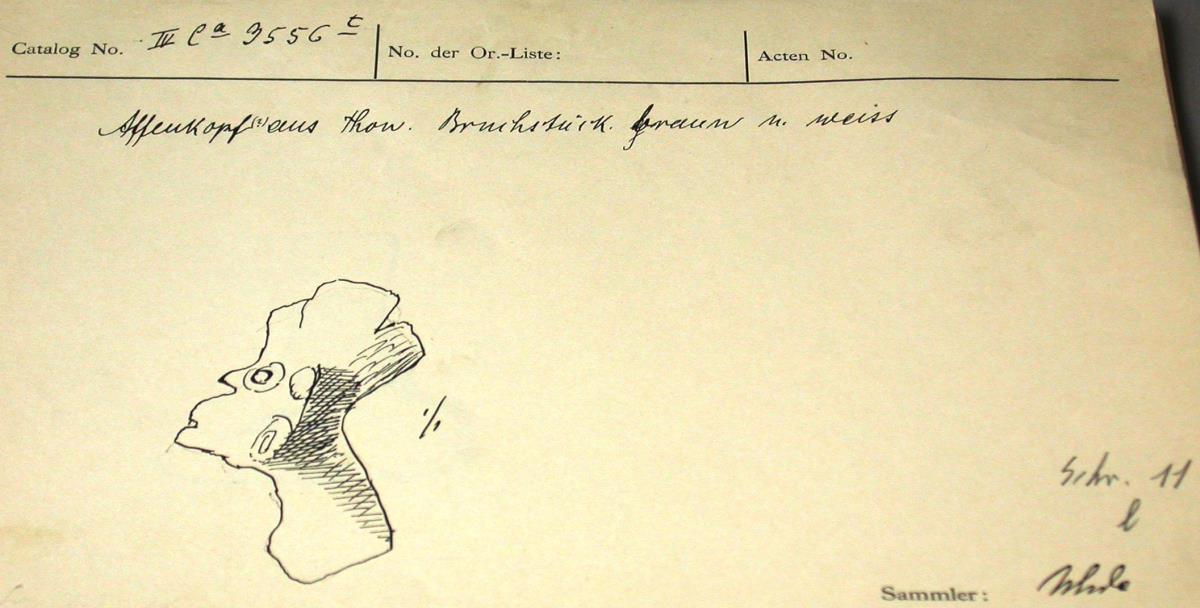 Catalog No. IV Ca 3556 t No. der Or.-Liste: Acten No.
Affenkopf(?) aus Thon. Bruchstück. braun u. weiss
1/1
Schr. 11
l
Sammler: Uhle